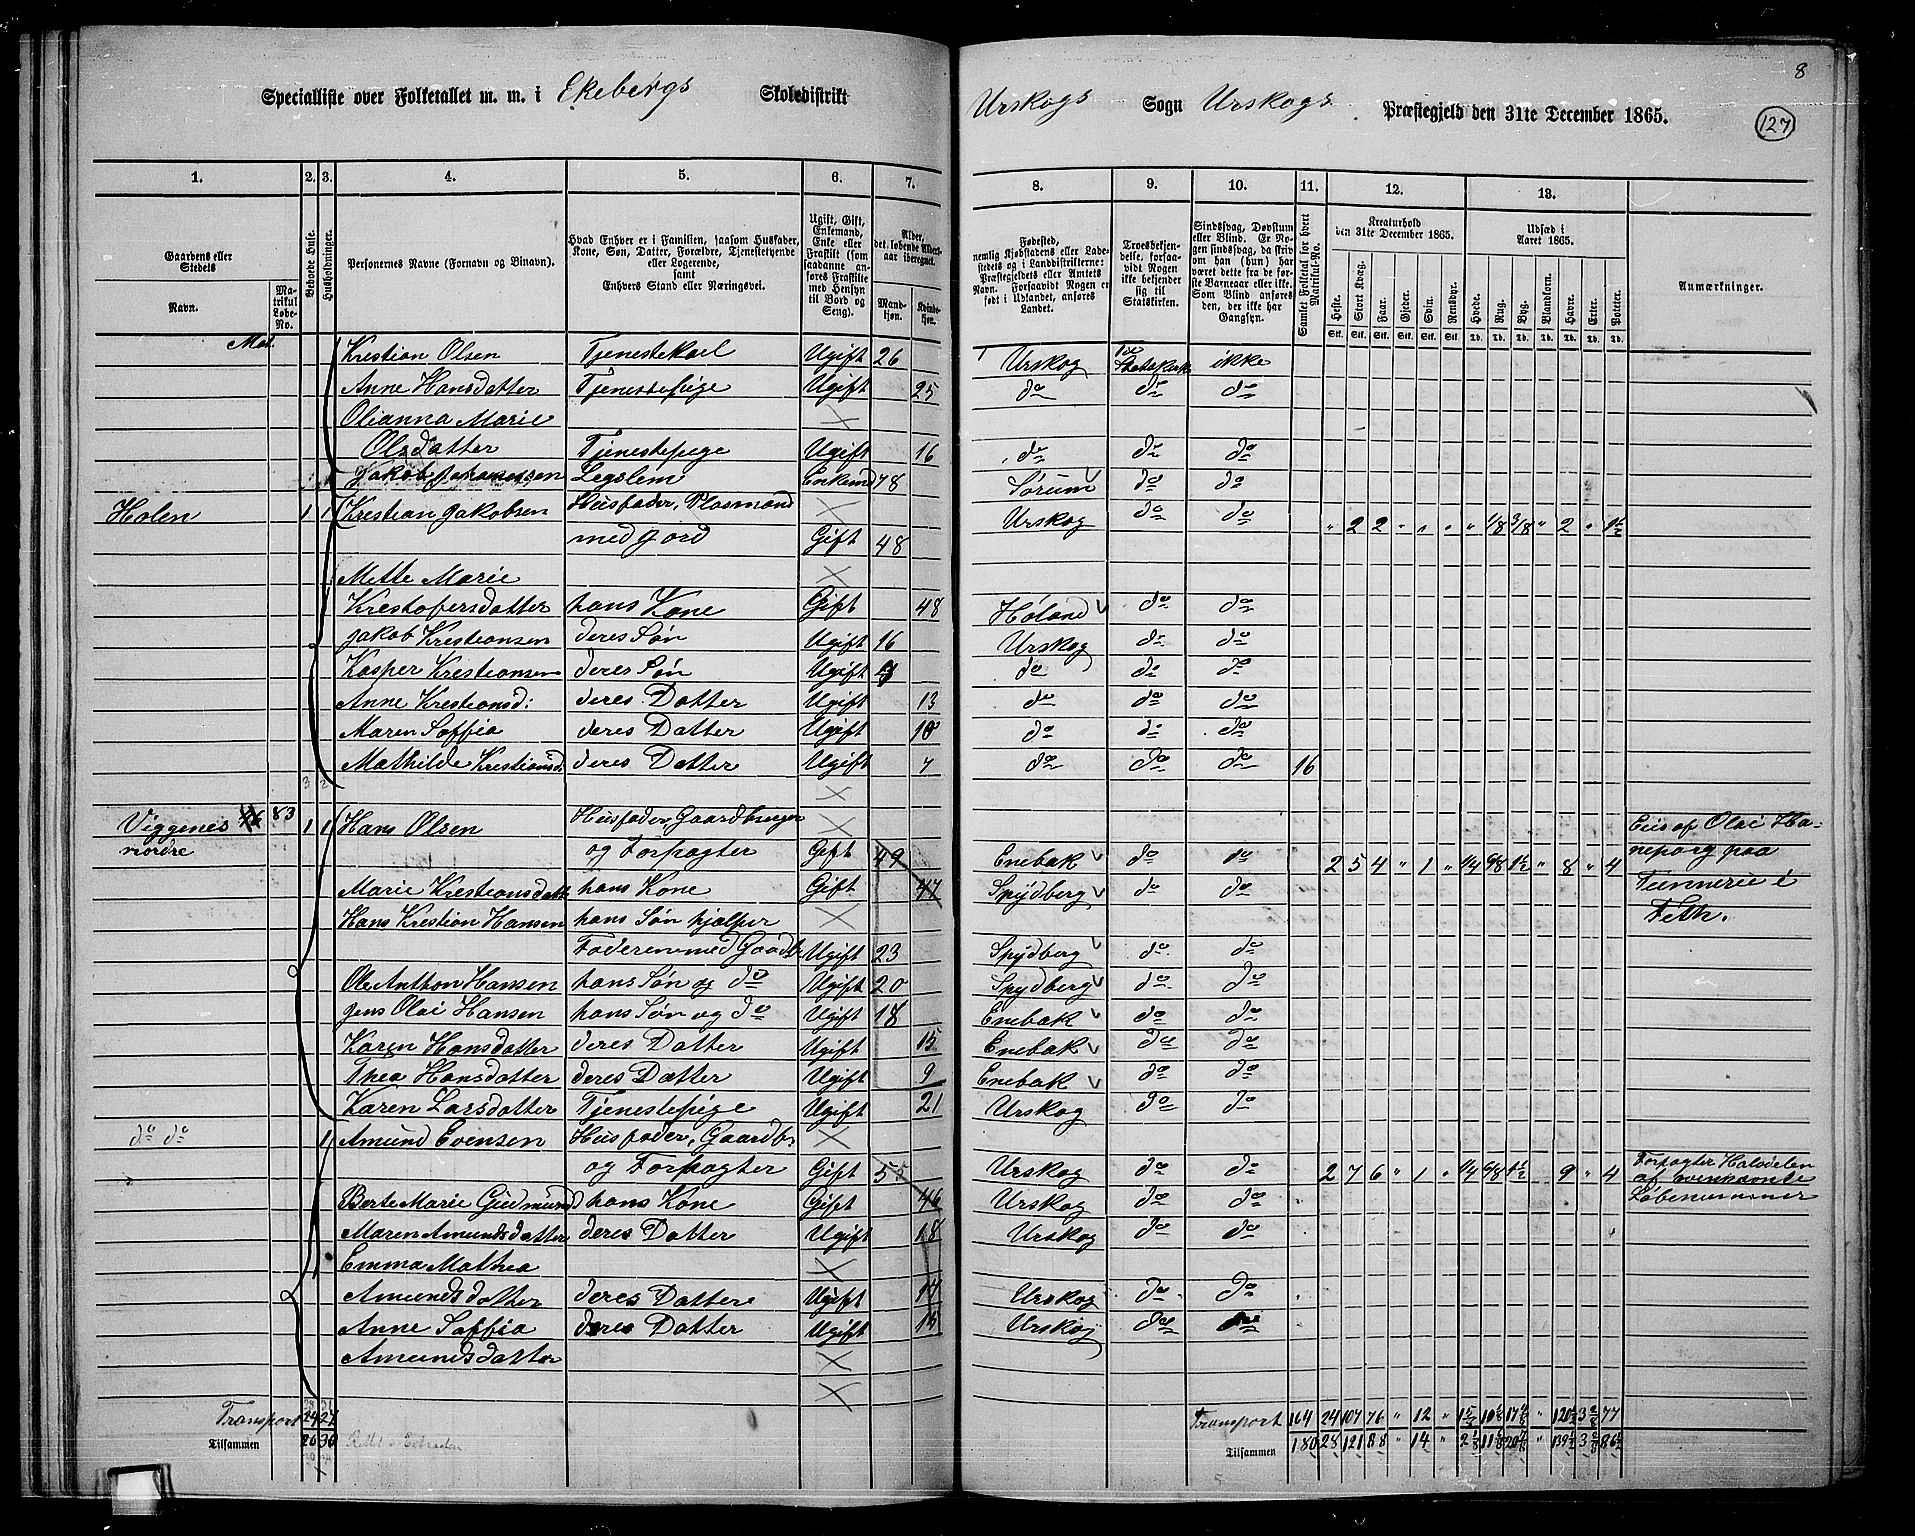 8
127
Specialliste over Folketallet m. m. i Ekebergs Skoledistrikt Urskogs Sogn Urskogs Præstegjeld den 31te December 1865.
1. 2. 3. 4. 5. 6. 7. 8. 9. 10. 11. 12. 13.
Gaardens eller Stedets
Navn.
Matrikul Løbe-No.
Beboede Huse.
Husholdninger.
Personernes Navne (Fornavn og Binavn).
Hvad Enhver er i Familien, saasom Husfader, Kone, Søn, Datter, Forældre, Tjenestetyende eller Logerende, samt Enhvers Stand eller Næringsvei.
Ugift, Gift, Enkemand, Enke eller Fraskilt (som saadanne anføres Fraskilte med Hensyn til Bord og Seng).
Alder, det løbende Aldersaar iberegnet.
Mandkjøn.
Kvindekjøn.
Fødested,
nemlig Kjøbstadens eller Ladestedets og i Landdistrikterne: Præstegjeldets eller Amtets Navn. Forsaavidt Nogen er født i Udlandet, anføres Landet.
Troesbekjendelse, forsaavidt Nogen ikke bekjender sig til Statskirken.
Sindssvag, Døvstum eller Blind. Er Nogen sindssvag, da skrives om han (hun) har været dette fra de første Barneaar eller ikke. Som Blind anføres den, der ikke har Gangsyn.
Samlet Folketal for hvert Matrikul-No.
Kreaturhold den 31te December 1865.
Heste. Stort Kvæg. Faar. Gjeder. Svin. Rensdyr.
Udsæd i Aaret 1865.
Hvede. Rug. Byg. Blandkorn. Havre. Erter. Poteter.
Stk. Stk. Stk. Stk. Stk. Stk. Td. Td. Td. Td. Td. Td. Td.
Anmærkninger.
Mat.
Krestian Olsen Tjenestekarl Ugift 26 Urskog ikke
Anne Hansdatter Tjenestepige Ugift 25 do do do
Olianna Marie
Olsdatter Tjenestepige Ugift 16 do do do
Jakob Johanessen Legslem Enkemd 78 Sørum do do
Holen 1 1 Krestian Jakobsen Husfader, Plasmand Urskog do do " 2 2 " " " " 1/8 3/8 " 2 " 1½
med Jord Gift 48
Mette Marie
Krestofersdatter hans Kone Gift 48 Høland do do
Jakob Krestiansen deres Søn Ugift 16 Urskog do do
Kasper Krestiansen deres Søn Ugift do do do
Anne Krestiansd: deres Datter Ugift 13 do do do
Maren Soffia deres Datter Ugift 10 do do do
Mathilde Krestiansd: deres Datter Ugift 7 do do do 16
3 2
Viggenes 83 1 1 Hans Olsen Husfader, Gaardbruger
nordre og Forpagter Gift 49 Enebak do do 2 5 4 " 1 " 1/4 6/8 1½ " 8 " 4
Eies af Olai Ha-
neborg paa
Tunnerei i
Feth.
Marie Krestiansdatt hans Kone Gift 47 Spydberg do do
Hans Krestian Hansen hans Søn hjælper
Faderen med Gaardb. Ugift 23 Spydberg do do
Ole Anthon Hansen hans Søn og do Ugift 20 Spydberg do do
Jens Olai Hansen hans Søn og do Ugift 18 Enebak do do
Karen Hansdatter deres Datter Ugift 15 Enebak do do
Thea Hansdatter deres Datter Ugift 9 Enebak do do
Karen Larsdatter Tjenestepige Ugift 21 Urskog do do
do do 1 Amund Evensen Husfader, Gaardb.
og Forpagter Gift 55 Urskog do do 2 7 6 " 1 " 1/4 6/8 1½ 9 " 4
Forpagter Halvdelen
af
Løbenummer
Berte Marie Gudmund hans Kone Gift 46 Urskog do do
Maren Amundsdatter deres Datter Ugift 18 Urskog do do
Emma Mathea
Amundsdatter deres Datter Ugift 14 Urskog do do
Anne Soffia deres Datter Ugift Urskog do do
Amundsdatter
Transport 24 27 Transport 164 24 107 76 " 12 " " 77
Tilsammen 26 30 Tilsammen 180 28 121 88 " 14 " " 86½